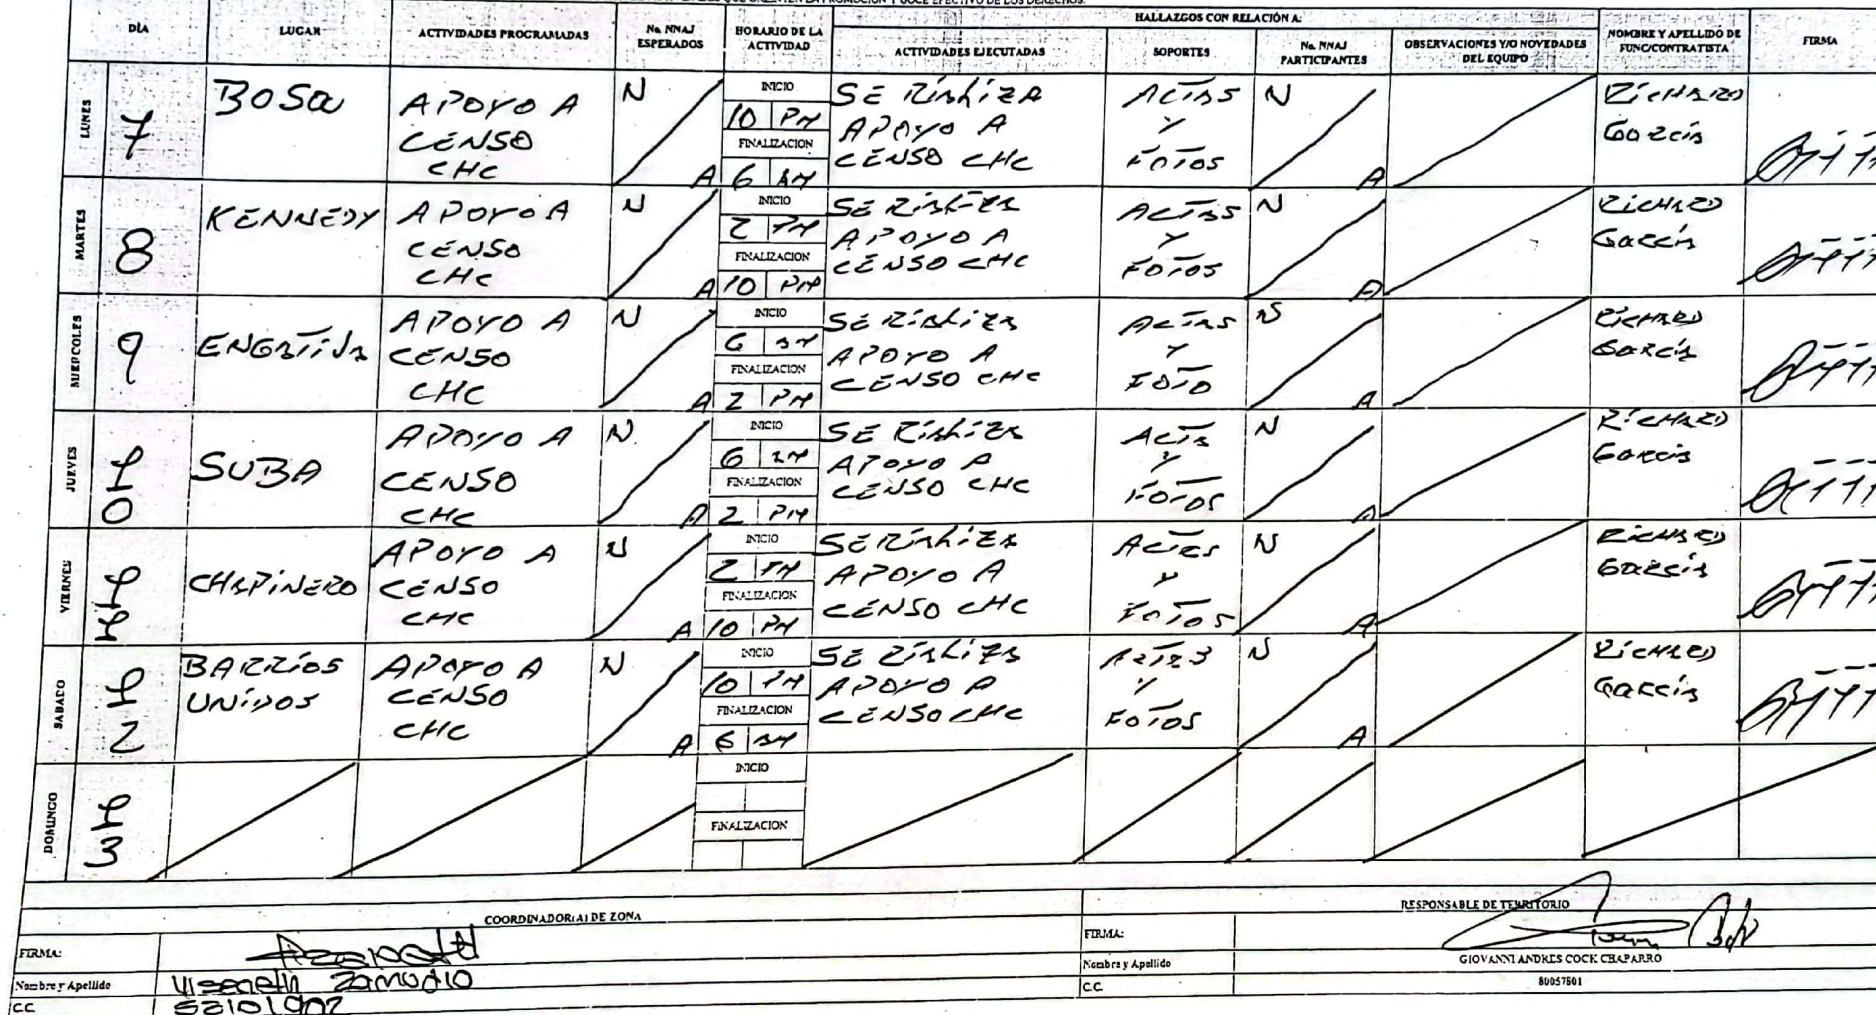 QUE ORIENTEN LA PROMOCIÓN Y GOCE EFECTIVO DE LOS DERECHOS.
DÍA
LUGAR
ACTIVIDADES PROGRAMADAS
No. NNAJ
ESPERADOS
HORARIO DE LA
ACTIVIDAD
HALLAZGOS CON RELACIÓN A:
ACTIVIDADES EJECUTADAS
SOPORTES
No. NNAJ
PARTICIPANTES
OBSERVACIONES Y/O NOVEDADES
DEL EQUIPO
NOMBRE Y APELLIDO DE
FUNC/CONTRATISTA
FIRMA
LUNES
7
BOSA
APOYO A
CENSO
CHC
N
A
INICIO
10 PM
FINALIZACION
6 AM
SE REALIZA
APOYO A
CENSO CHC
ACTAS
Y
FOTOS
N
A
RICHARD
García
MARTES
8
KENNEDY
APOYO A
CENSO
CHC
N
A
INICIO
2 PM
FINALIZACION
10 PM
SE REALIZA
APOYO A
CENSO CHC
ACTAS
Y
FOTOS
N
A
RICHARD
García
MIERCOLES
9
ENGATIVA
APOYO A
CENSO
CHC
N
A
INICIO
6 AM
FINALIZACION
2 PM
SE REALIZA
APOYO A
CENSO CHC
ACTAS
Y
FOTO
N
A
RICHARD
García
JUEVES
10
SUBA
APOYO A
CENSO
CHC
N
A
INICIO
6 AM
FINALIZACION
2 PM
SE REALIZA
APOYO A
CENSO CHC
ACTA
Y
FOTOS
N
A
RICHARD
García
VIERNES
11
CHAPINERO
APOYO A
CENSO
CHC
N
A
INICIO
2 PM
FINALIZACION
10 PM
SE REALIZA
APOYO A
CENSO CHC
ACTAS
Y
FOTOS
N
A
RICHARD
García
SABADO
12
BARRIOS
UNIDOS
APOYO A
CENSO
CHC
N
A
INICIO
10 PM
FINALIZACION
6 AM
SE REALIZA
APOYO A
CENSO CHC
ACTAS
Y
FOTOS
N
A
RICHARD
García
DOMINGO
13
INICIO
FINALIZACION
COORDINADOR(A) DE ZONA
FIRMA:
Nombre y Apellido
Zamudio
CC
52101902
RESPONSABLE DE TERRITORIO
FIRMA:
Nombre y Apellido
GIOVANNI ANDRES COCK CHAPARRO
CC
80057601